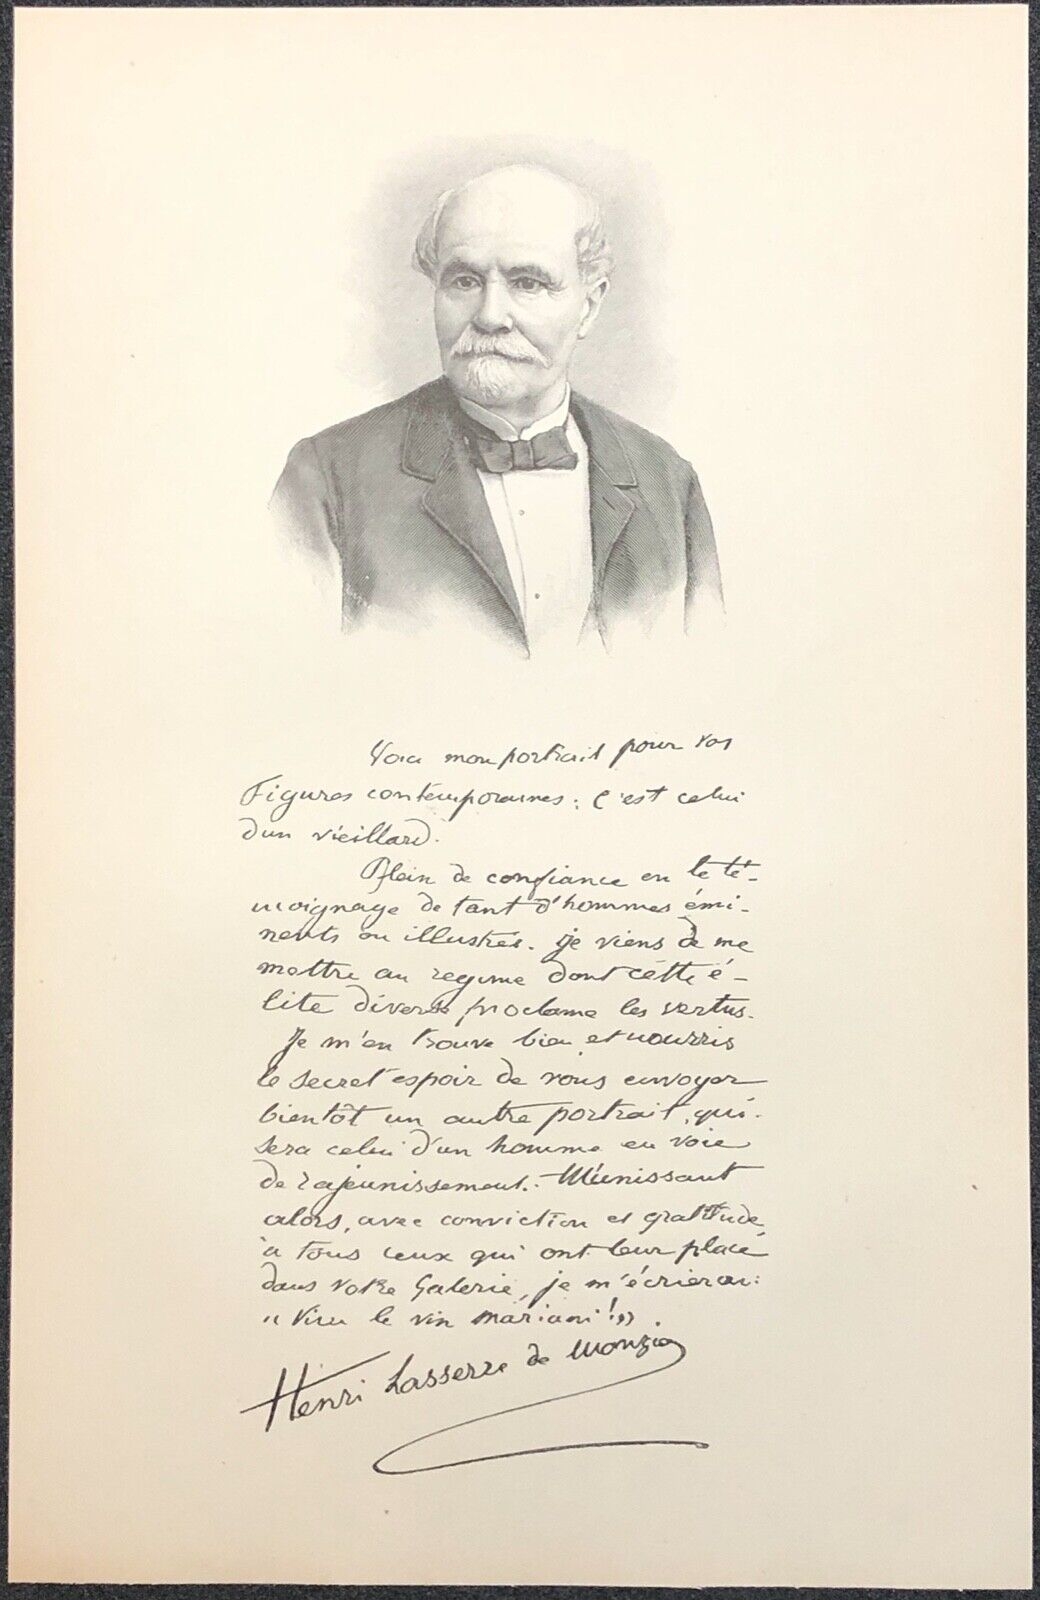 Voici mon portrait pour vos
Figures contemporaines: C'est celui
d'un vieillard.
Plein de confiance en le té-
moignage de tant d'hommes émi-
nents ou illustres. je viens de me
mettre au regime dont cette é-
lite diverse proclame les vertus.
Je m'en trouve bien et nourris
le secret espoir de vous envoyer
bientôt un autre portrait, qui
sera celui d'un homme en voie
de rajeunissement. M'unissant
alors, avec conviction et gratitude,
à tous ceux qui ont leur place
dans votre Galerie, je m'écrierai:
"Vive le vin mariani!".
Henri Lasserre de Monzie